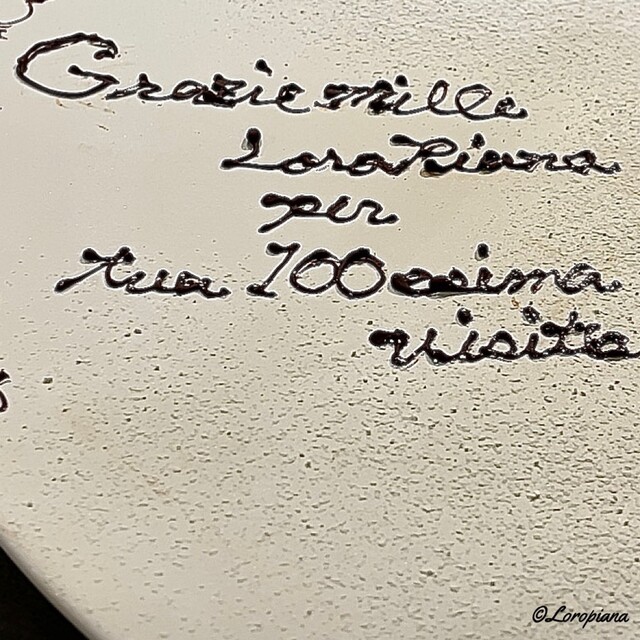 Grazie mille
LoraPiana
per
tua 100esima
visita
©Loropiana